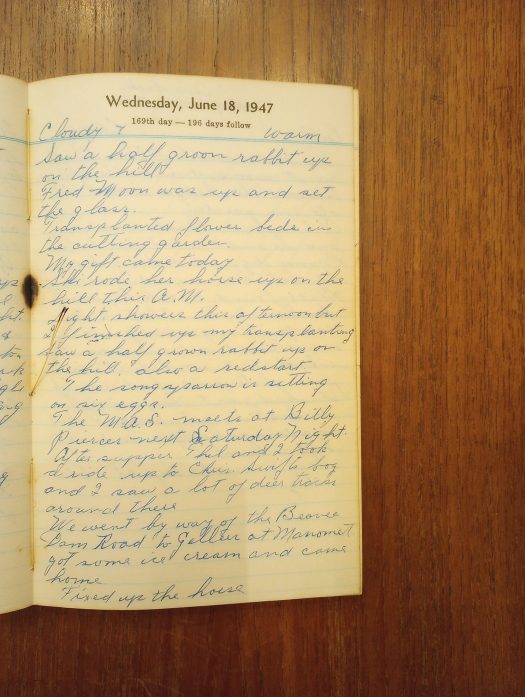 Wednesday, June 18, 1947
169th day — 196 days follow
Cloudy & warm
Saw a half groon rabbit up
on the hill
Fred Moon was up and set
the glass.
Transplanted flower beds in
the cutting garden.
My gift came today
She rode her horse up on the
hill this A.M.
Light showers this afternoon but
I finished up my transplanting
Saw a half grown rabbit up on
the hill, also a redstart
The song sparrow is sitting
on six eggs.
The M.A.S. meets at Billy
Pierces next Saturday Night.
After supper Thel and I took
a ride up to Chas. Swifts bog
and I saw a lot of deer tracks
around there
We went by way of the Beaver
Dam Road to at Manomet
got some ice cream and came
home
Fixed up the house